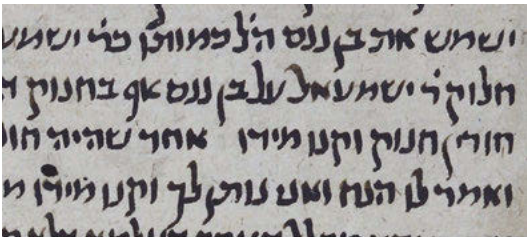 ישמש את בן ננס הל כר׳ ישמע
חלוק ר׳ ישמעאל על בן ננס אף בחנוק
חורין חנוק וקנו מידו אחר שהיה חונ
ואמר לו הנח ואני נותן לך וקנו מידו מ